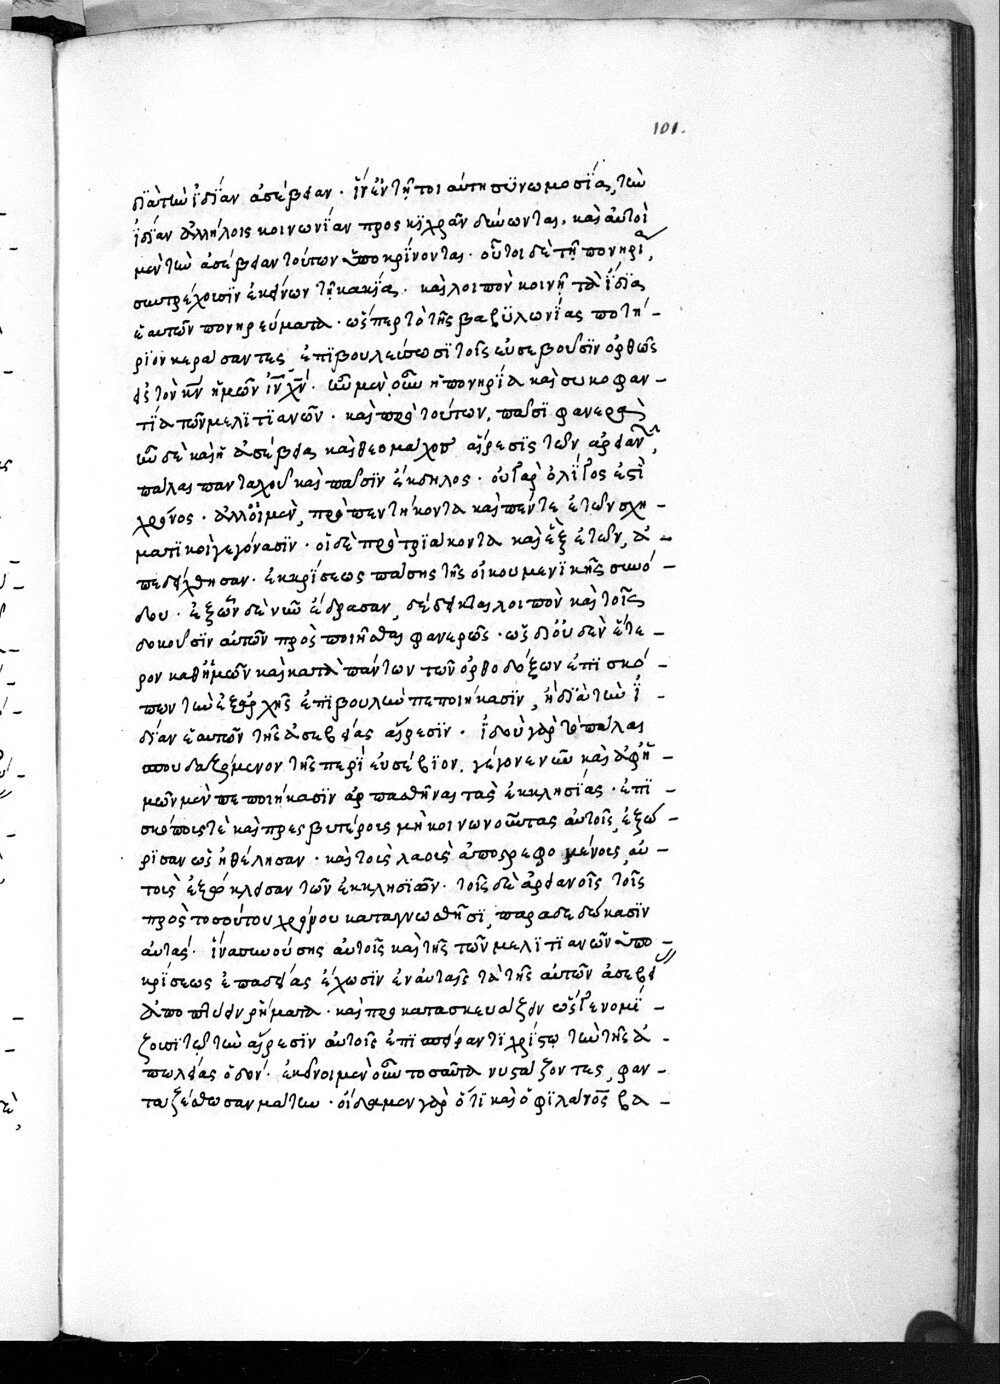 101.
διὰ τὴν ἰδίαν ἀσέβειαν · ἵν' ἐν τῇ τοιαύτη συνωμοσία, τὴν
ἰδίαν ἀλλήλοις κοινωνίαν προσκιχρᾶν δύνωνται. καὶ αὐτοὶ
μὲν τὴν ἀσέβειαν τούτων ὑποκρίνονται · οὗτοι δὲ τῇ πονηρίᾳ,
συντρέχουσιν ἐκείνων τῇ κακίᾳ. καὶ λοιπὸν κοινῇ τὰ ἴδια
ἑαυτῶν πονηρεύματα · ὥσπερ τὸ τῆς βαβυλωνίας ποτή-
ριον κεράσαντες ἐπιβουλεύσωσι τοῖς εὐσεβοῦσιν ὀρθῶς
εἰς τὸν κν ἡμῶν ιν χν. νῦν μὲν οὖν ἡ πονηρία καὶ συκοφαν-
τία τῶν μελιτιανῶν · καὶ πρὸ τούτων, πᾶσι φανερά
νῦν δὲ καὶ ἡ ἀσέβεια καὶ θεομάχος αἵρεσις τῶν ἀρειανῶν,
πάλαι πανταχοῦ καὶ πᾶσιν ἔκδηλος · οὐ γὰρ ὀλίγος ἐστὶ
χρόνος · ἀλλ' οἱ μὲν, πρὸ πεντήκοντα καὶ πέντε ἐτῶν σχη-
ματικοὶ γεγόνασιν · οἱ δὲ πρὸ τριάκοντα καὶ ἓξ ἐτῶν, ἀ-
πεδείχθησαν · ἐκ κρίσεως πάσης τῆς οἰκουμενικῆς συνό-
δου · ἐξ ὧν δὲ νῦν ἔδρασαν, δέδεικται λοιπὸν καὶ τοῖς
δοκοῦσιν αὐτῶν προσποιῆσθαι φανερῶς · ὡς δι' οὐδὲν ἕτε-
ρον καθ' ἡμῶν καὶ κατὰ πάντων τῶν ὀρθοδόξων ἐπισκό-
πων τὴν ἐξ ἀρχῆς ἐπιβουλὴν πεποιήκασιν, ἢ διὰ τὴν ἰ-
δίαν ἑαυτῶν τῆς ἀσεβείας αἵρεσιν. ἰδοὺ γὰρ τὸ πάλαι
σπουδαζόμενον τῆς περὶ εὐσέβιον, γέγονε νῦν καὶ ἀφ' ἡ-
μῶν μὲν πεποιήκασιν ἁρπασθῆναι τὰς ἐκκλησίας · ἐπι-
σκόποις τὲ καὶ πρεσβυτέροις μὴ κοινωνοῦντας αὐτοῖς, ἐξώ-
ρισαν ὡς ἠθέλησαν · καὶ τοὺς λαοὺς ἀποστρεφομένους, αὐ-
τοὺς ἐξέκλεισαν τῶν ἐκκλησιῶν · τοῖς δὲ ἀρειανοῖς τοῖς
πρὸ τοσούτου χρόνου καταγνωσθεῖσι, παραδεδώκασιν
αὐτάς. ἵνα συνούσης αὐτοῖς καὶ τῆς τῶν μελιτιανῶν ὑπο-
κρίσεως ἐπ' ἀδείας ἔχωσιν ἐν αὐταῖς τὰ τῆς αὐτῶν ἀσεβεί
ἀποπτύειν ῥήματα · καὶ προκατασκευάζειν ὥς γε νομί-
ζουσι τὴν αἵρεσιν αὐτοῖς ἐπισπείραντι χρίστῳ τὴν τῆς ἀ-
πωλείας ὁδόν. ἐκεῖνοι μὲν οὖν τοσαῦτα νυστάζοντες, φαν-
ταζέσθωσαν μάτην · οἴδαμεν γὰρ ὅτι καὶ ὁ φιλάνος βα-